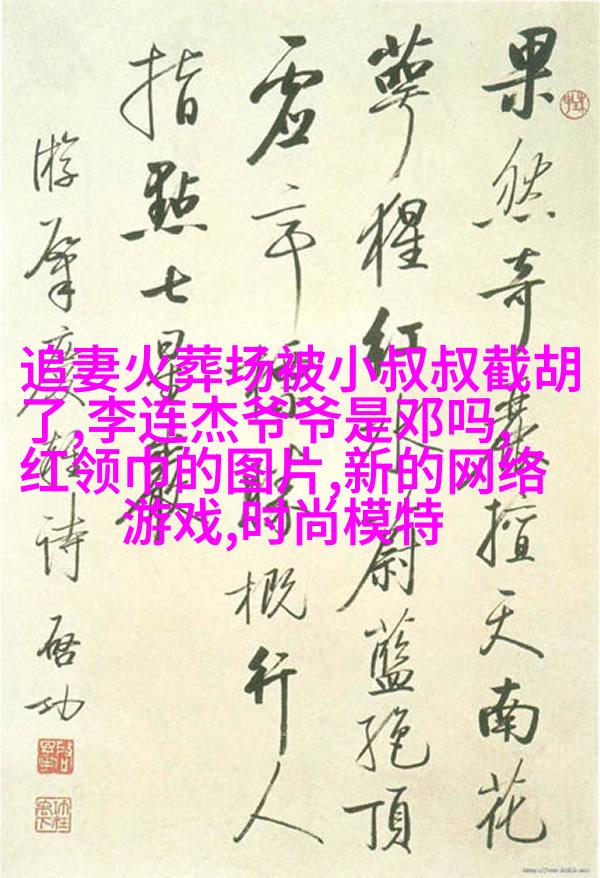 果然奇擅天南花
萼猩红水蔚藍绝頂
虚亭勝概行人
指點七星巖
游肇慶詩 啓功
追妻火葬场被小叔叔截胡
了,李连杰爷爷是邓吗,
红领巾的图片,新的网络
游戏,时尚模特